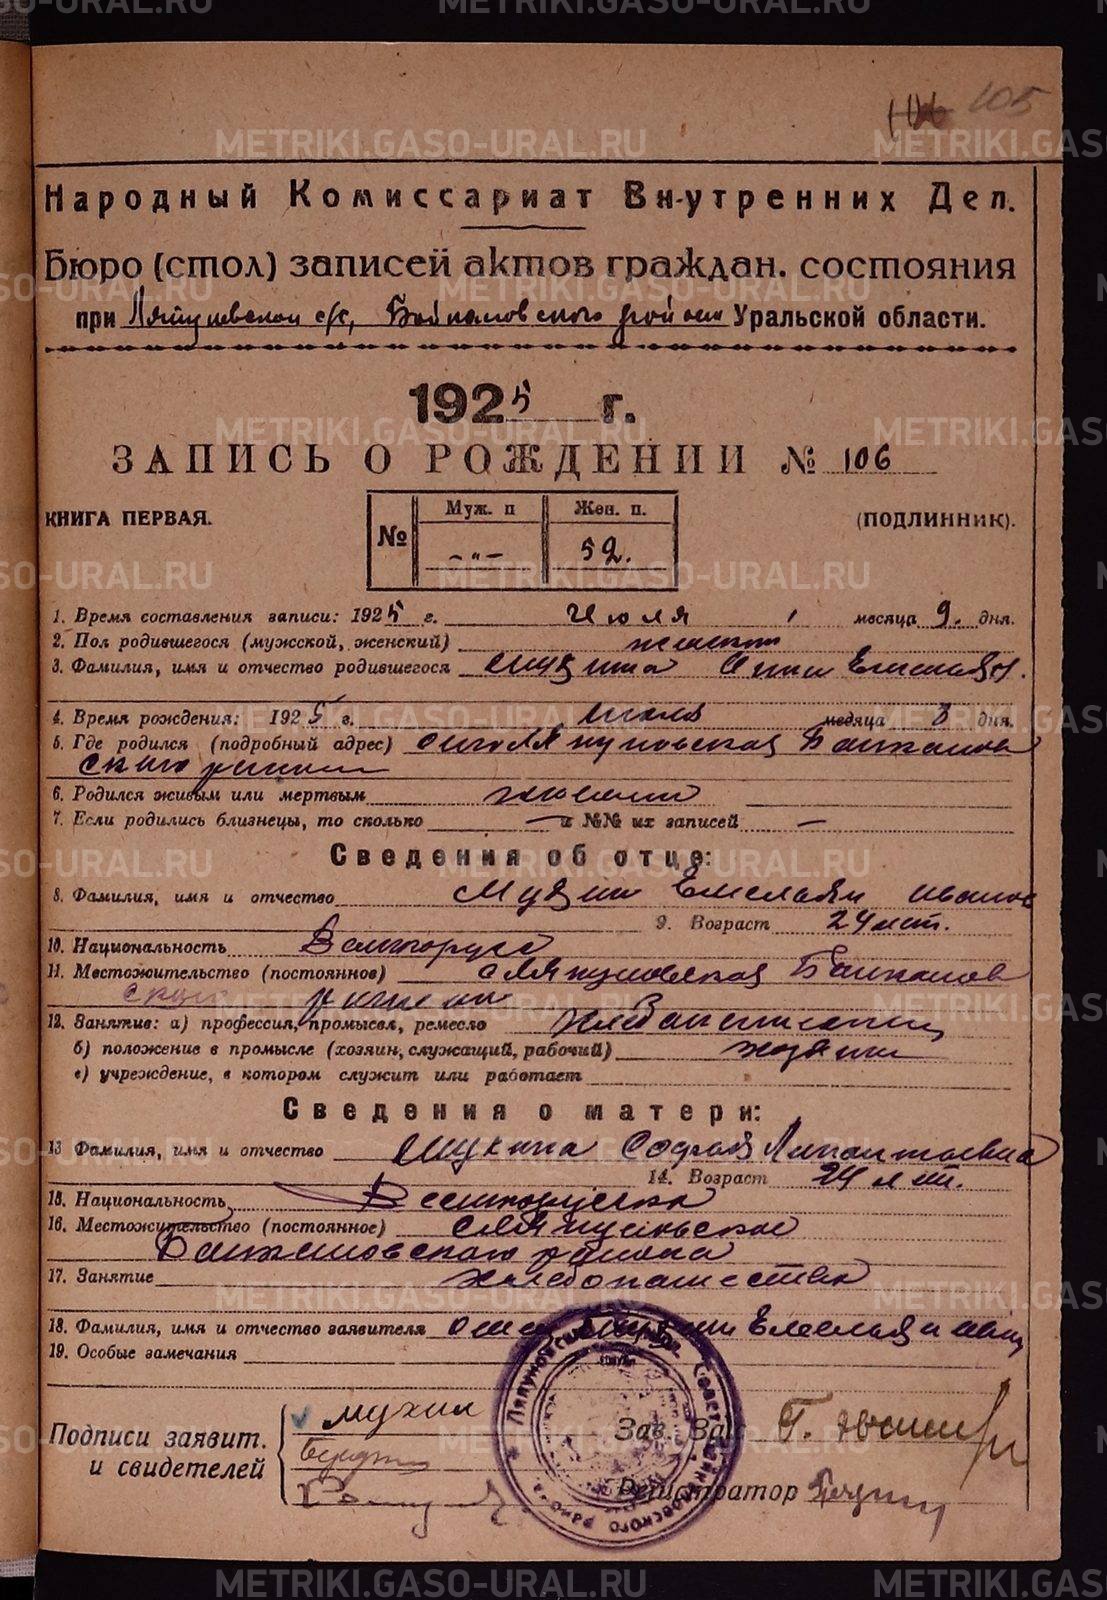 105
Народный Комиссариат Внутренних Дел.
Бюро (стол) записей актов граждан. состояния
при Ляпуновском с/с, Байкаловского района Уральской области.
1925 г.
ЗАПИСЬ О РОЖДЕНИИ № 106
КНИГА ПЕРВАЯ.
№ Муж. п Жен. п.
—"— 52.
(ПОДЛИННИК).
1. Время составления записи: 1925 г. Июля месяца 9. дня.
2. Пол родившегося (мужской, женский) женский
3. Фамилия, имя и отчество родившегося
4. Время рождения: 1925 г. Июля месяца 8 дня.
5. Где родился (подробный адрес) Ляпуновская Байкалов
ского района
6. Родился живым или мертвым живым
7. Если родились близнецы, то сколько — и №№ их записей —
Сведения об отце:
8. Фамилия, имя и отчество Мухин Емельян Иванов
9. Возраст 24 лет.
10. Национальность Великорус
11. Местожительство (постоянное) с Ляпуновская Байкалов
ского района
12. Занятие: а) профессия, промысел, ремесло хлебопашец
б) положение в промысле (хозяин, служащий, рабочий) хозяин
в) учреждение, в котором служит или работает
Сведения о матери:
13 Фамилия, имя и отчество Мухина Софья
14. Возраст 24 лет.
15. Национальность Великоруска
16. Местожительство (постоянное) с Ляпуновское
Байкаловского района
17. Занятие хлебопашество
18. Фамилия, имя и отчество заявителя Мухин Емельян Иван
19. Особые замечания
Подписи заявит.
и свидетелей
Мухин
Зав. Заг.
Регистратор
METRIKI.GASO-URAL.RU